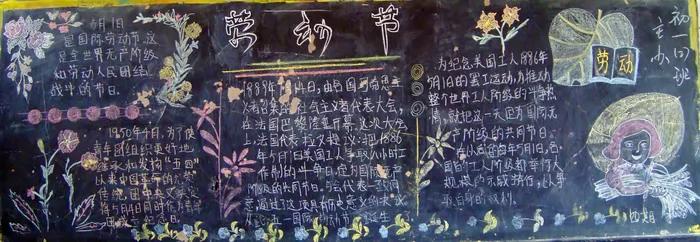 劳动节
5月1日
是国际劳动节,这
是全世界无产阶级
和劳动人民团结
战斗的节日。
1950年4月,为了使
青年团组织更好地
继承和发扬"五四"
以来中国革命的光荣
传统,团中央决定
将5月4日
1889年7月14日,由各国马克思主
义者召集的社会主义者代表大会,
在法国巴黎隆重开幕。这次大会上
法国代表拉文提议:把1886
年5月1日美国工人争取八小时工
作制的斗争日定为国际无产
阶级的共同节日。与会代表一致同
意,通过了这项具有历史意义的决议
从此,五一国际劳动节诞生了
为纪念美国工人1886年
5月1日的罢工运动,为推动
整个世界工人阶级的斗争热
情,就把这一天定为国际无
产阶级的共同节日。
各国的工人阶级都举行大
规模的示威游行,以争
取自身的权利。
劳动
初一四班
主办